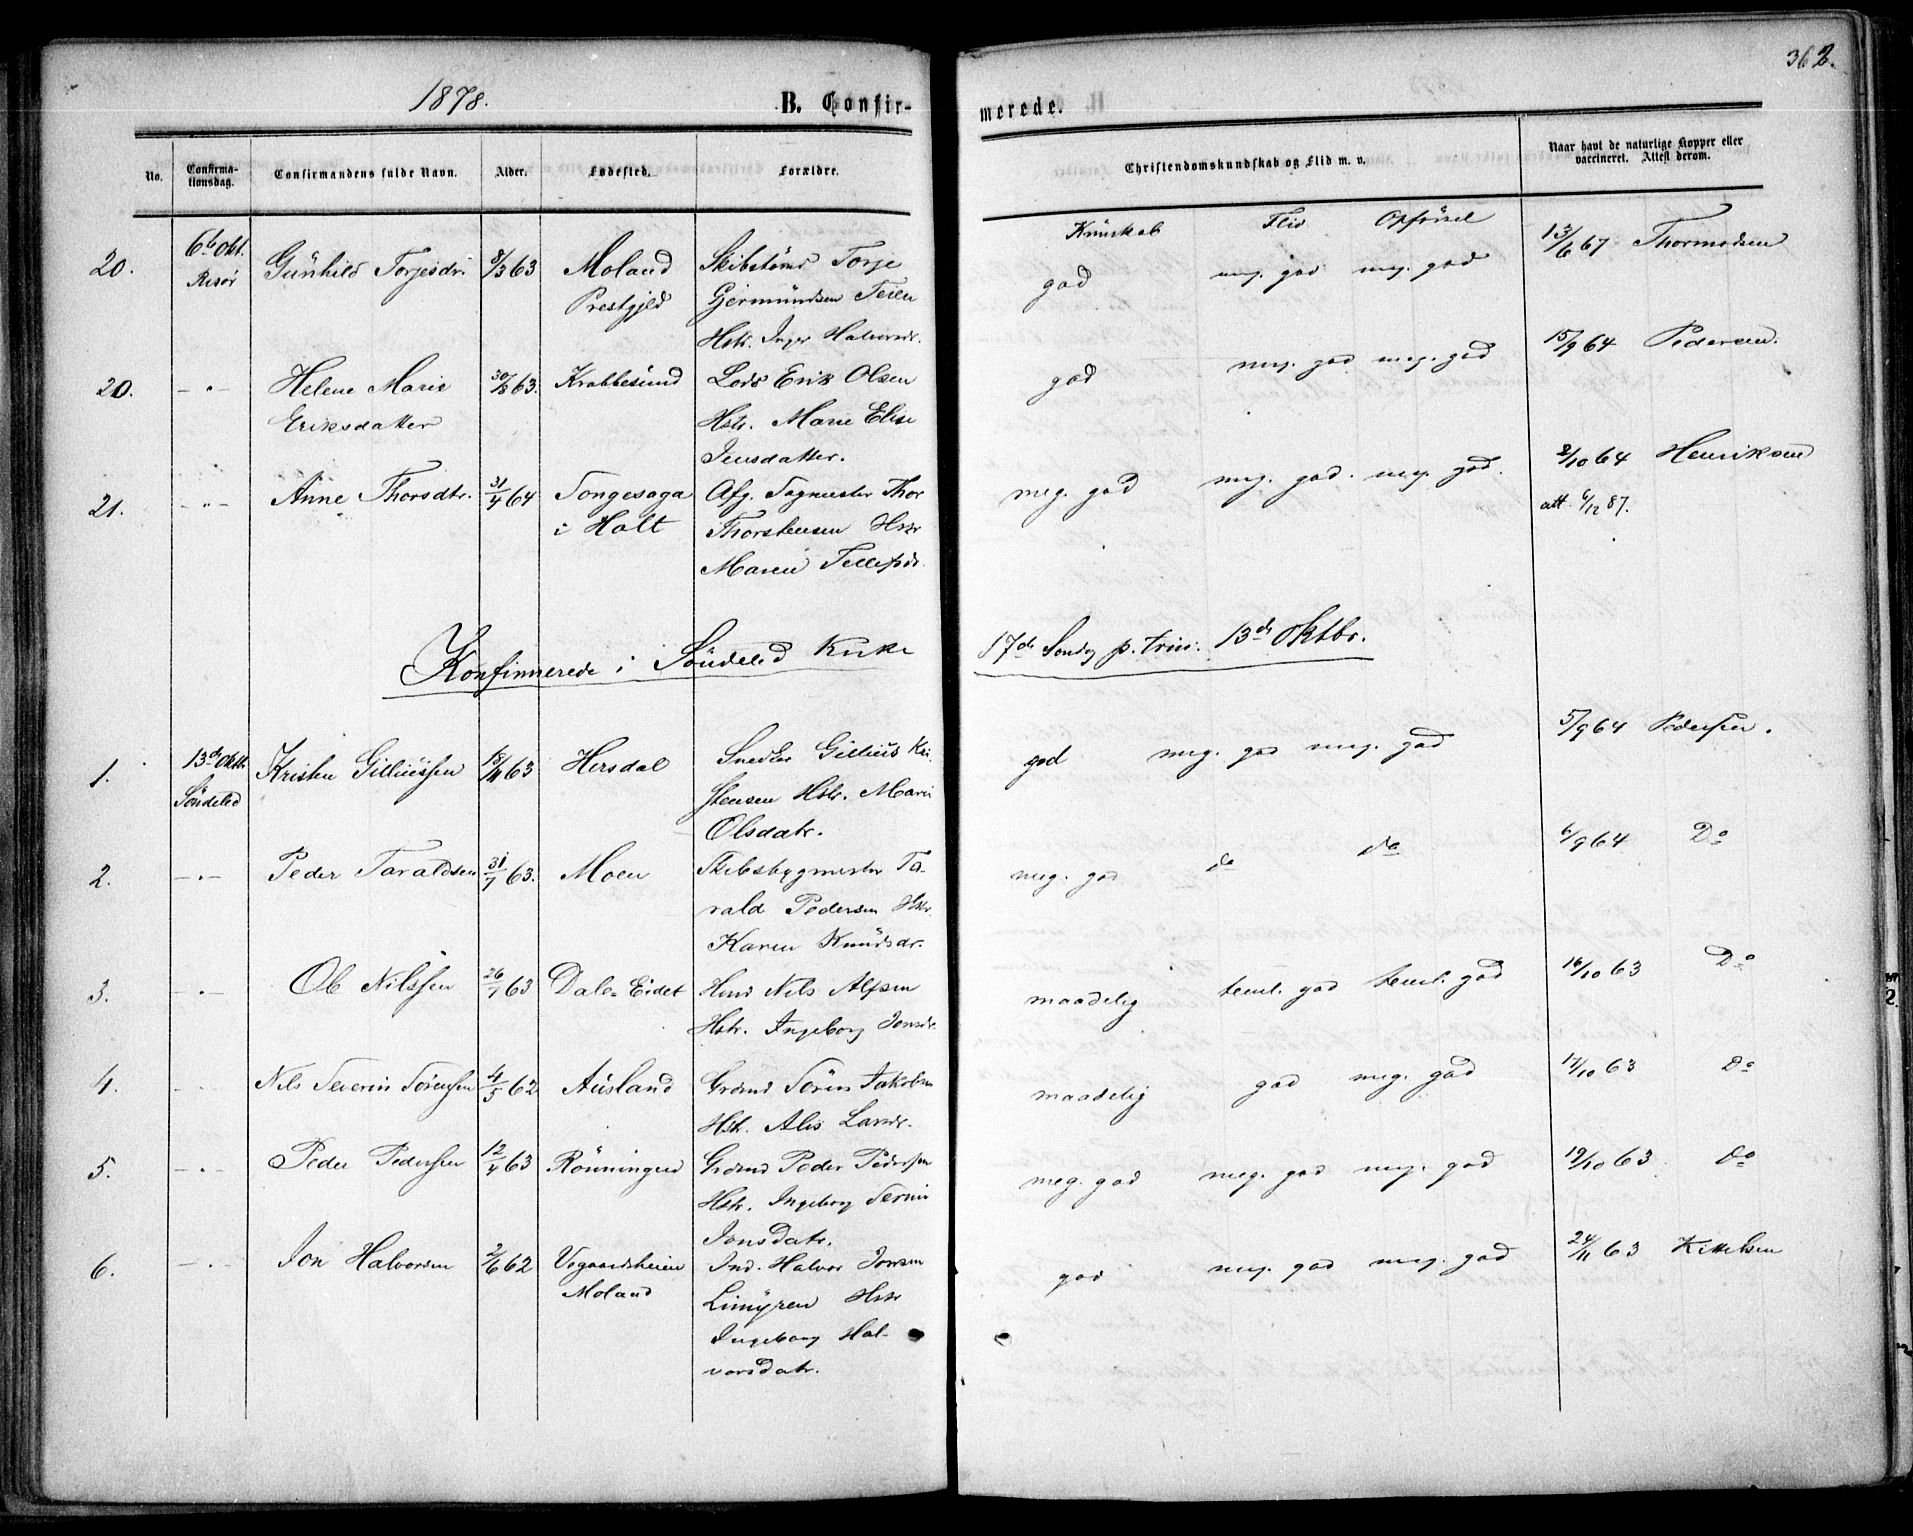 362.
1878.
B. Confir-
merede.
No.
Confirma-
tionsdag.
Confirmandens fulde Navn.
Alder.
Fødested.
Forældre.
Christendomskundskab og Flid m. v.
Naar havt de naturlige Kopper eller
vaccineret. Attest derom.
Kunskab Flid Opførsel
20. 6te Okt. Gunhild Torjesdr. 8/3 63 Moland Skibstømr Torje god meg. god meg. god 13/6 67 Thormodsen
Risør Prestgjeld Gjermundsen Teien
Hstr. Inger Halvorsdr.
20. – " – Helene Marie 30/8 63. Krabbesund Lods Erik Olsen god meg. god meg. god 15/9 64 Pedersen.
Eriksdatter Hstr. Marie Elise
Jensdatter.
21. – " – Anne Thorsdtr. 31/4 64 Songesaga Afg. Sagmester Thor meg. god meg. god. meg. god. 2/10 64 Henriksen
i Holt Thorstensen Hstr att. 6/12 87.
Maren Tellefsdr.
Konfirmerede i Söndeled Kirke 17de Sondg p. trin. 13de Oktbr.
1. 13de Oktb. Kristen Gilliussen 18/11 63 Hersdal Snedker Gillius Kri- god meg. god meg. god 5/9 64 Pedersen.
Söndeled stensen Hstr. Maren
Olsdatr.
2. – " – Peder Taraldsen 31/7 63. Moen Skibsbygmester Ta- meg. god do do 6/9 64 Do
rald Pedersen Hstr.
Karen Knudsdr.
3. – " – Ole Nilssen 26/7 63 Dale-Eidet Hmd Nils Alfsen maadelig teml. god teml. god 16/10 63 Do
Hstr. Ingeborg Jonsdr.
4. – " – Nils Severin Sörensen 4/5 62 Ausland Grdmd Sören Jakobsen maadelig god meg. god 17/10 63 Do
Hstr. Alis Larsdr.
5. – " – Peder Pedersen 12/4 63 Rönningen Grdmd Peder Pedersen meg. god meg. god meg. god 19/10 63 Do
Hstr. Ingeborg Serine
Jonsdatr.
6. – " – Jon Halvorsen 2/6 62 Vegaardsheien Ind. Halvor Jonsen god meg. god meg. god 24/11 63 Kittelsen
Moland Limyren Hstr
Ingeborg Hal-
vorsdatr.